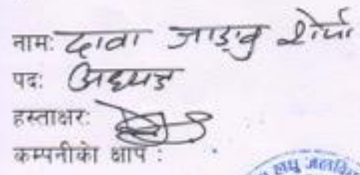 नामः दावा जाङ्बु शेर्पा
पदः अध्यक्ष
हस्ताक्षरः
कम्पनीको छाप :
लघु जलवि